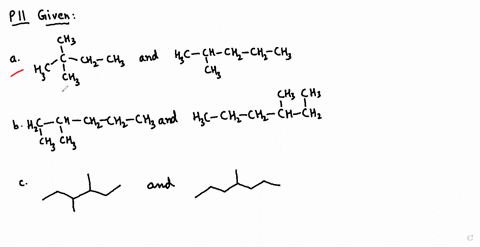 P11 Given:
CH3
a. H3C-C-CH2-CH3 and H3C-CH-CH2-CH2-CH3
CH3 CH3
CH3 CH3
b. H2C-CH-CH2-CH2-CH3 and H3C-CH2-CH2-CH-CH2
CH3 CH3
c. and